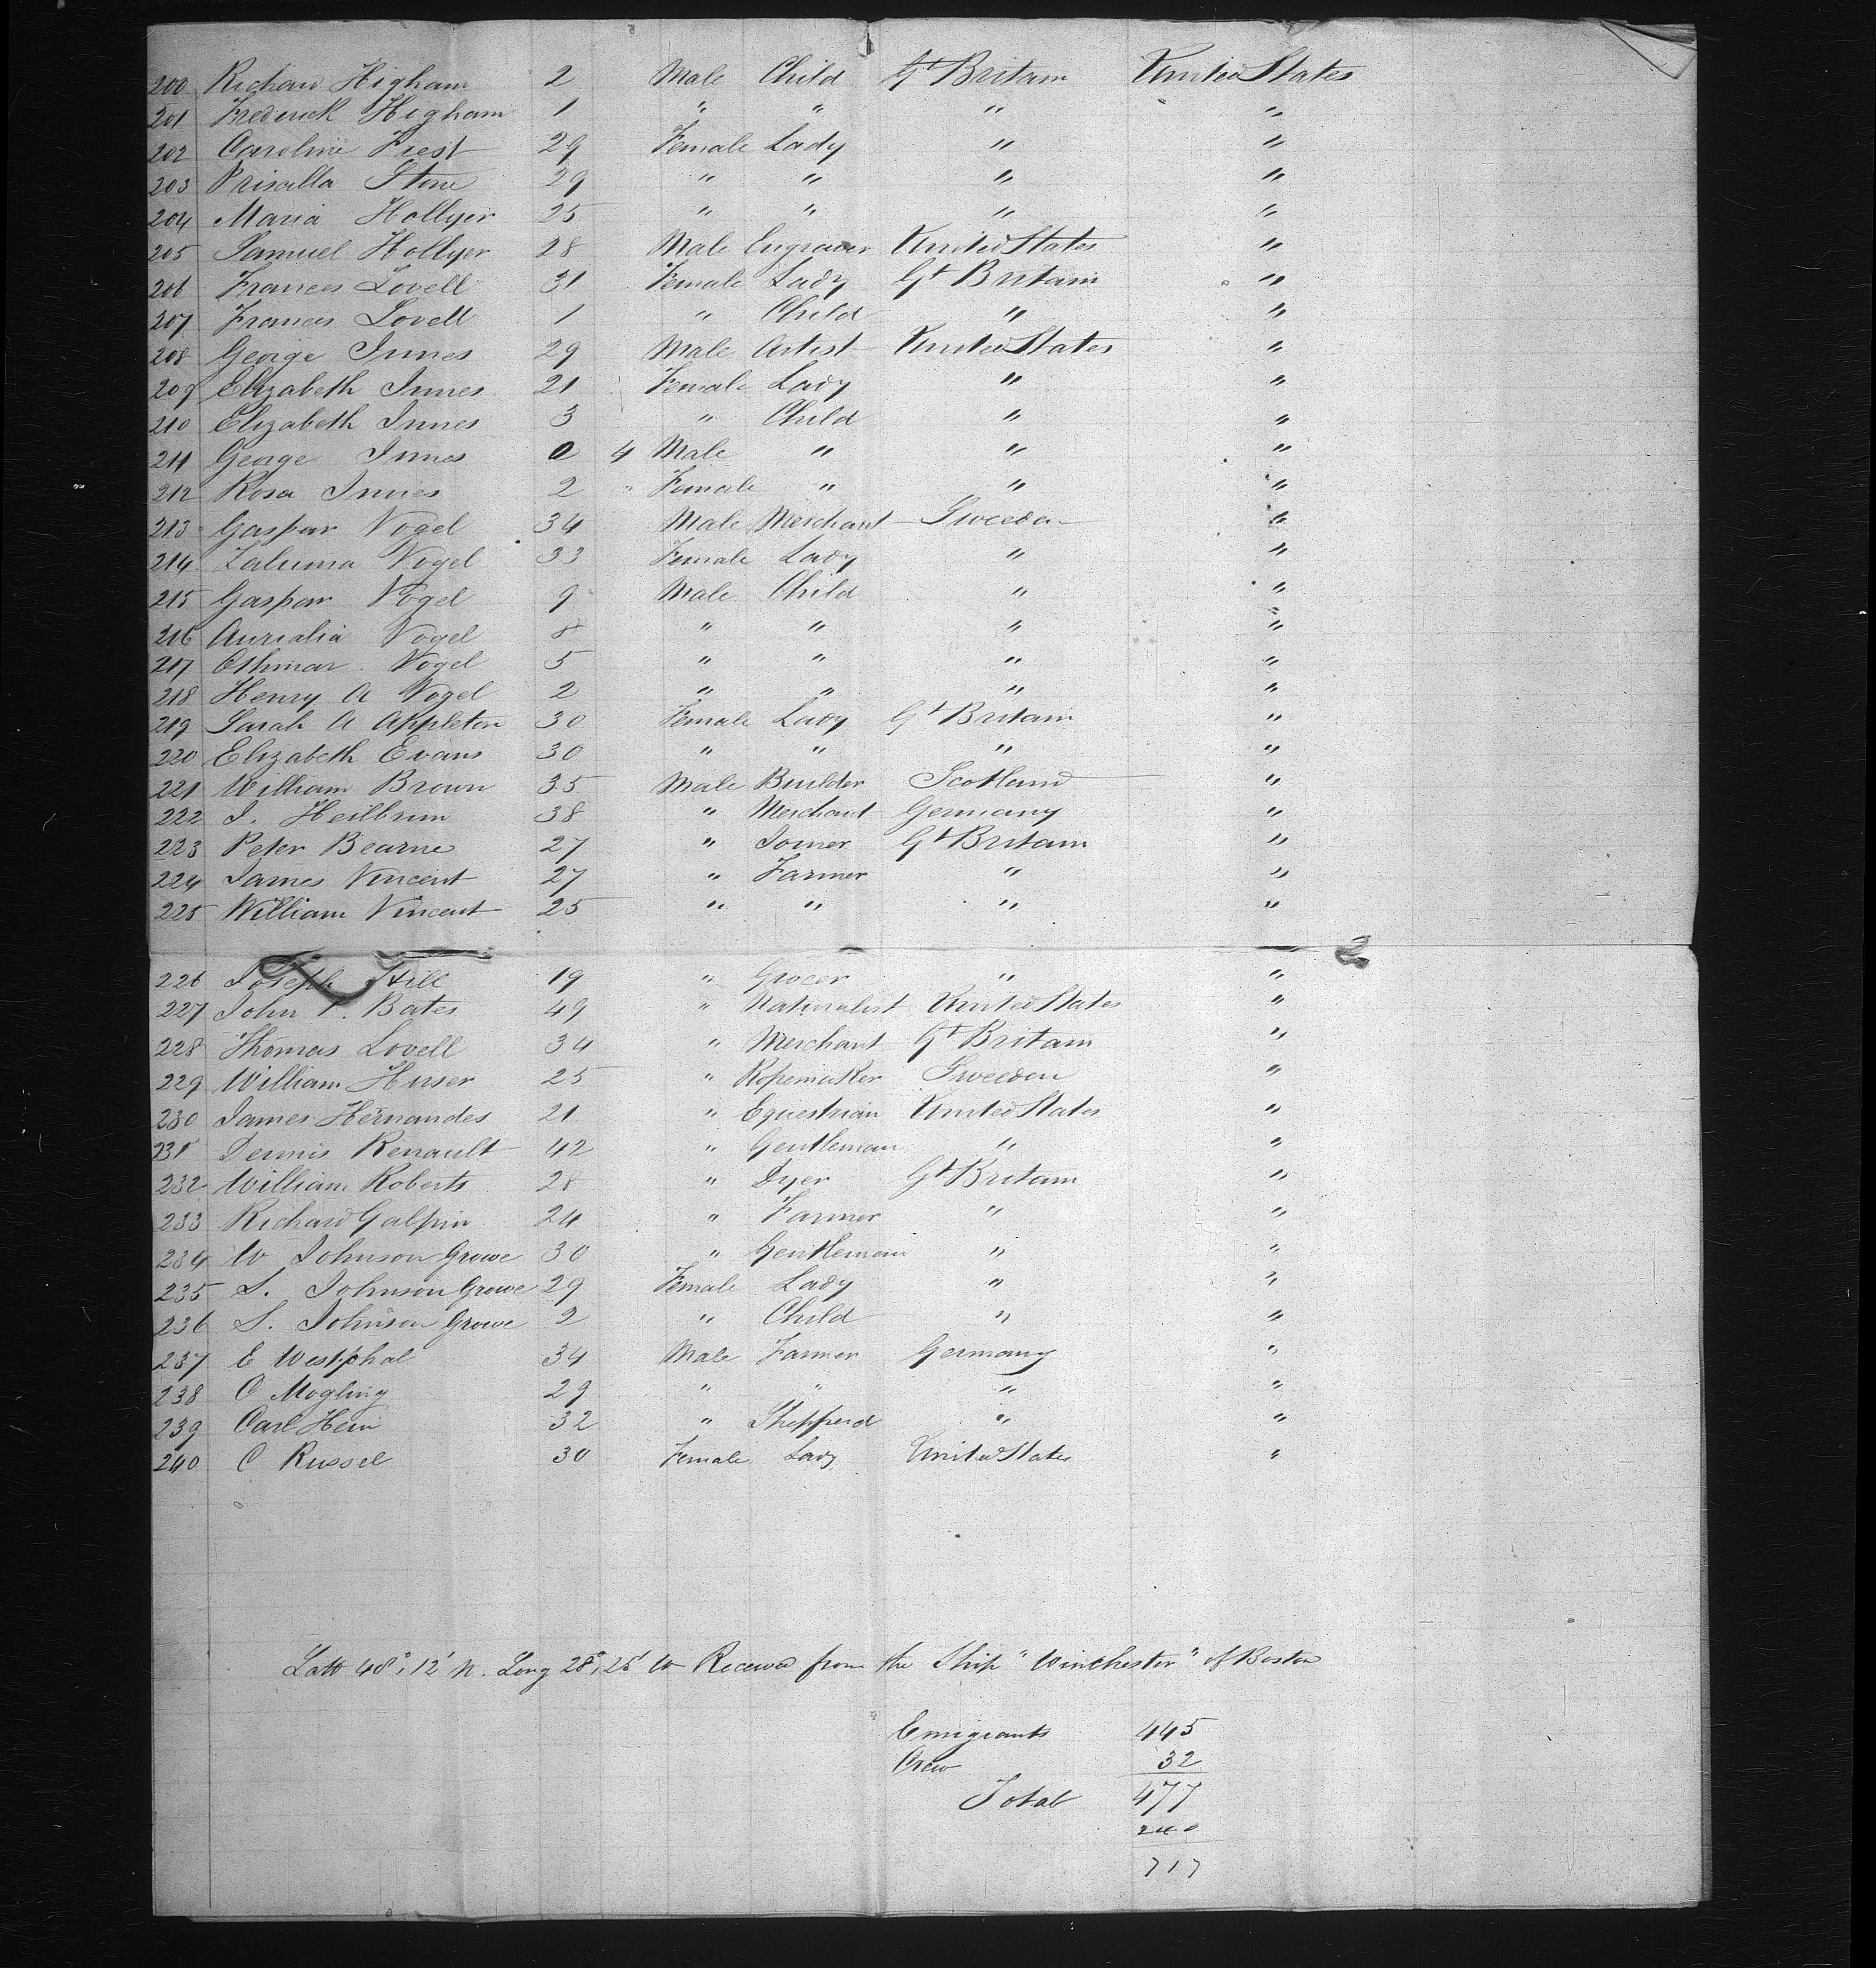 200 Richard Higham 2 Male Child Gt Britain United States
201 Frederick Higham 1 " " " "
202 Caroline Frest 29 Female Lady " "
203 Priscilla Stone 29 " " " "
204 Maria Hollyer 25 " " " "
205 Samuel Hollyer 28 Male Engraver United States "
206 Frances Lovell 31 Female Lady Gt Britain "
207 Frances Lovell 1 " Child " "
208 George Innes 29 Male Artist United States "
209 Elizabeth Innes 21 Female Lady " "
210 Elizabeth Innes 3 " Child " "
211 George Innes 0 4 Male " " "
212 Rosa Innes 2 " Female " " "
213 Gaspar Vogel 34 Male Merchant Sweeden "
214 Vogel 33 Female Lady " "
215 Gaspar Vogel 9 Male Child " "
216 Aurialia Vogel 8 " " " "
217 Othmar Vogel 5 " " " "
218 Henry A Vogel 2 " " " "
219 Sarah A Appleton 30 Female Lady Gt Britain "
220 Elizabeth Evans 30 " " " "
221 William Brown 35 Male Builder Scotland "
222 I. Heilbrun 38 " Merchant Germany "
223 Peter Bearne 27 " Joiner Gt Britain "
224 James Vincent 27 " Farmer " "
225 William Vincent 25 " " " "
226 Joseph Hill 19 " Grocer " "
227 John Bates 49 " Naturalist United States "
228 Thomas Lovell 34 " Merchant Gt Britain "
229 William Huser 25 " Ropemaker Sweeden "
230 James Hernandes 21 " Equestrian United States "
231 Dennis Renault 42 " Gentleman " "
232 William Roberts 28 " Dyer Gt Britain "
233 Richard Galpin 24 " Farmer " "
234 W Johnson Growe 30 " Gentleman " "
235 S. Johnson Growe 29 Female Lady " "
236 S. Johnson Growe 2 " Child " "
237 E Westphal 34 Male Farmer Germany "
238 C Mogling 29 " " " "
239 Carl Hein 32 " Shepperd " "
240 C Russel 30 Female Lady United States "
Latt 48°, 12' N. Long 28°, 25' W Received from the Ship "Winchester" of Boston
Emigrants 445
Crew 32
Total 477
240
717